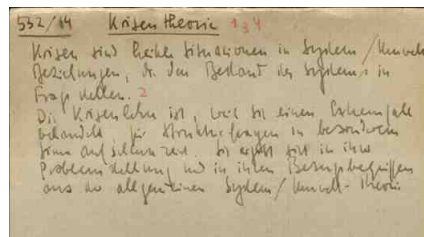 532/14 Krisentheorie 134
Krisen sind heikle Situationen in System/Umwelt-
Beziehungen, die den Bestand des Systems in
Frage stellen. 2
Die Krisenlehre ist, weil sie einen Extremfall
behandelt, für Strukturfragen in besonderem
Sinne aufschlussreich. Sie ergibt sich in ihrer
Problemstellung und in ihren Bezugsbegriffen
aus der allgemeinen System/Umwelt-Theorie